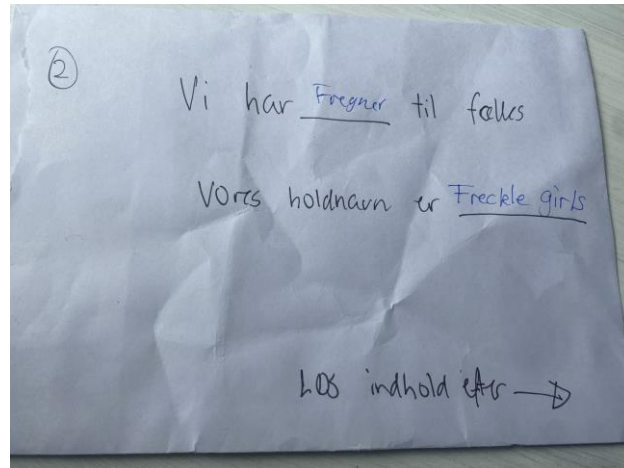 2
Vi har Fregner til fælles
Vores holdnavn er Freckle girls
indhold efter